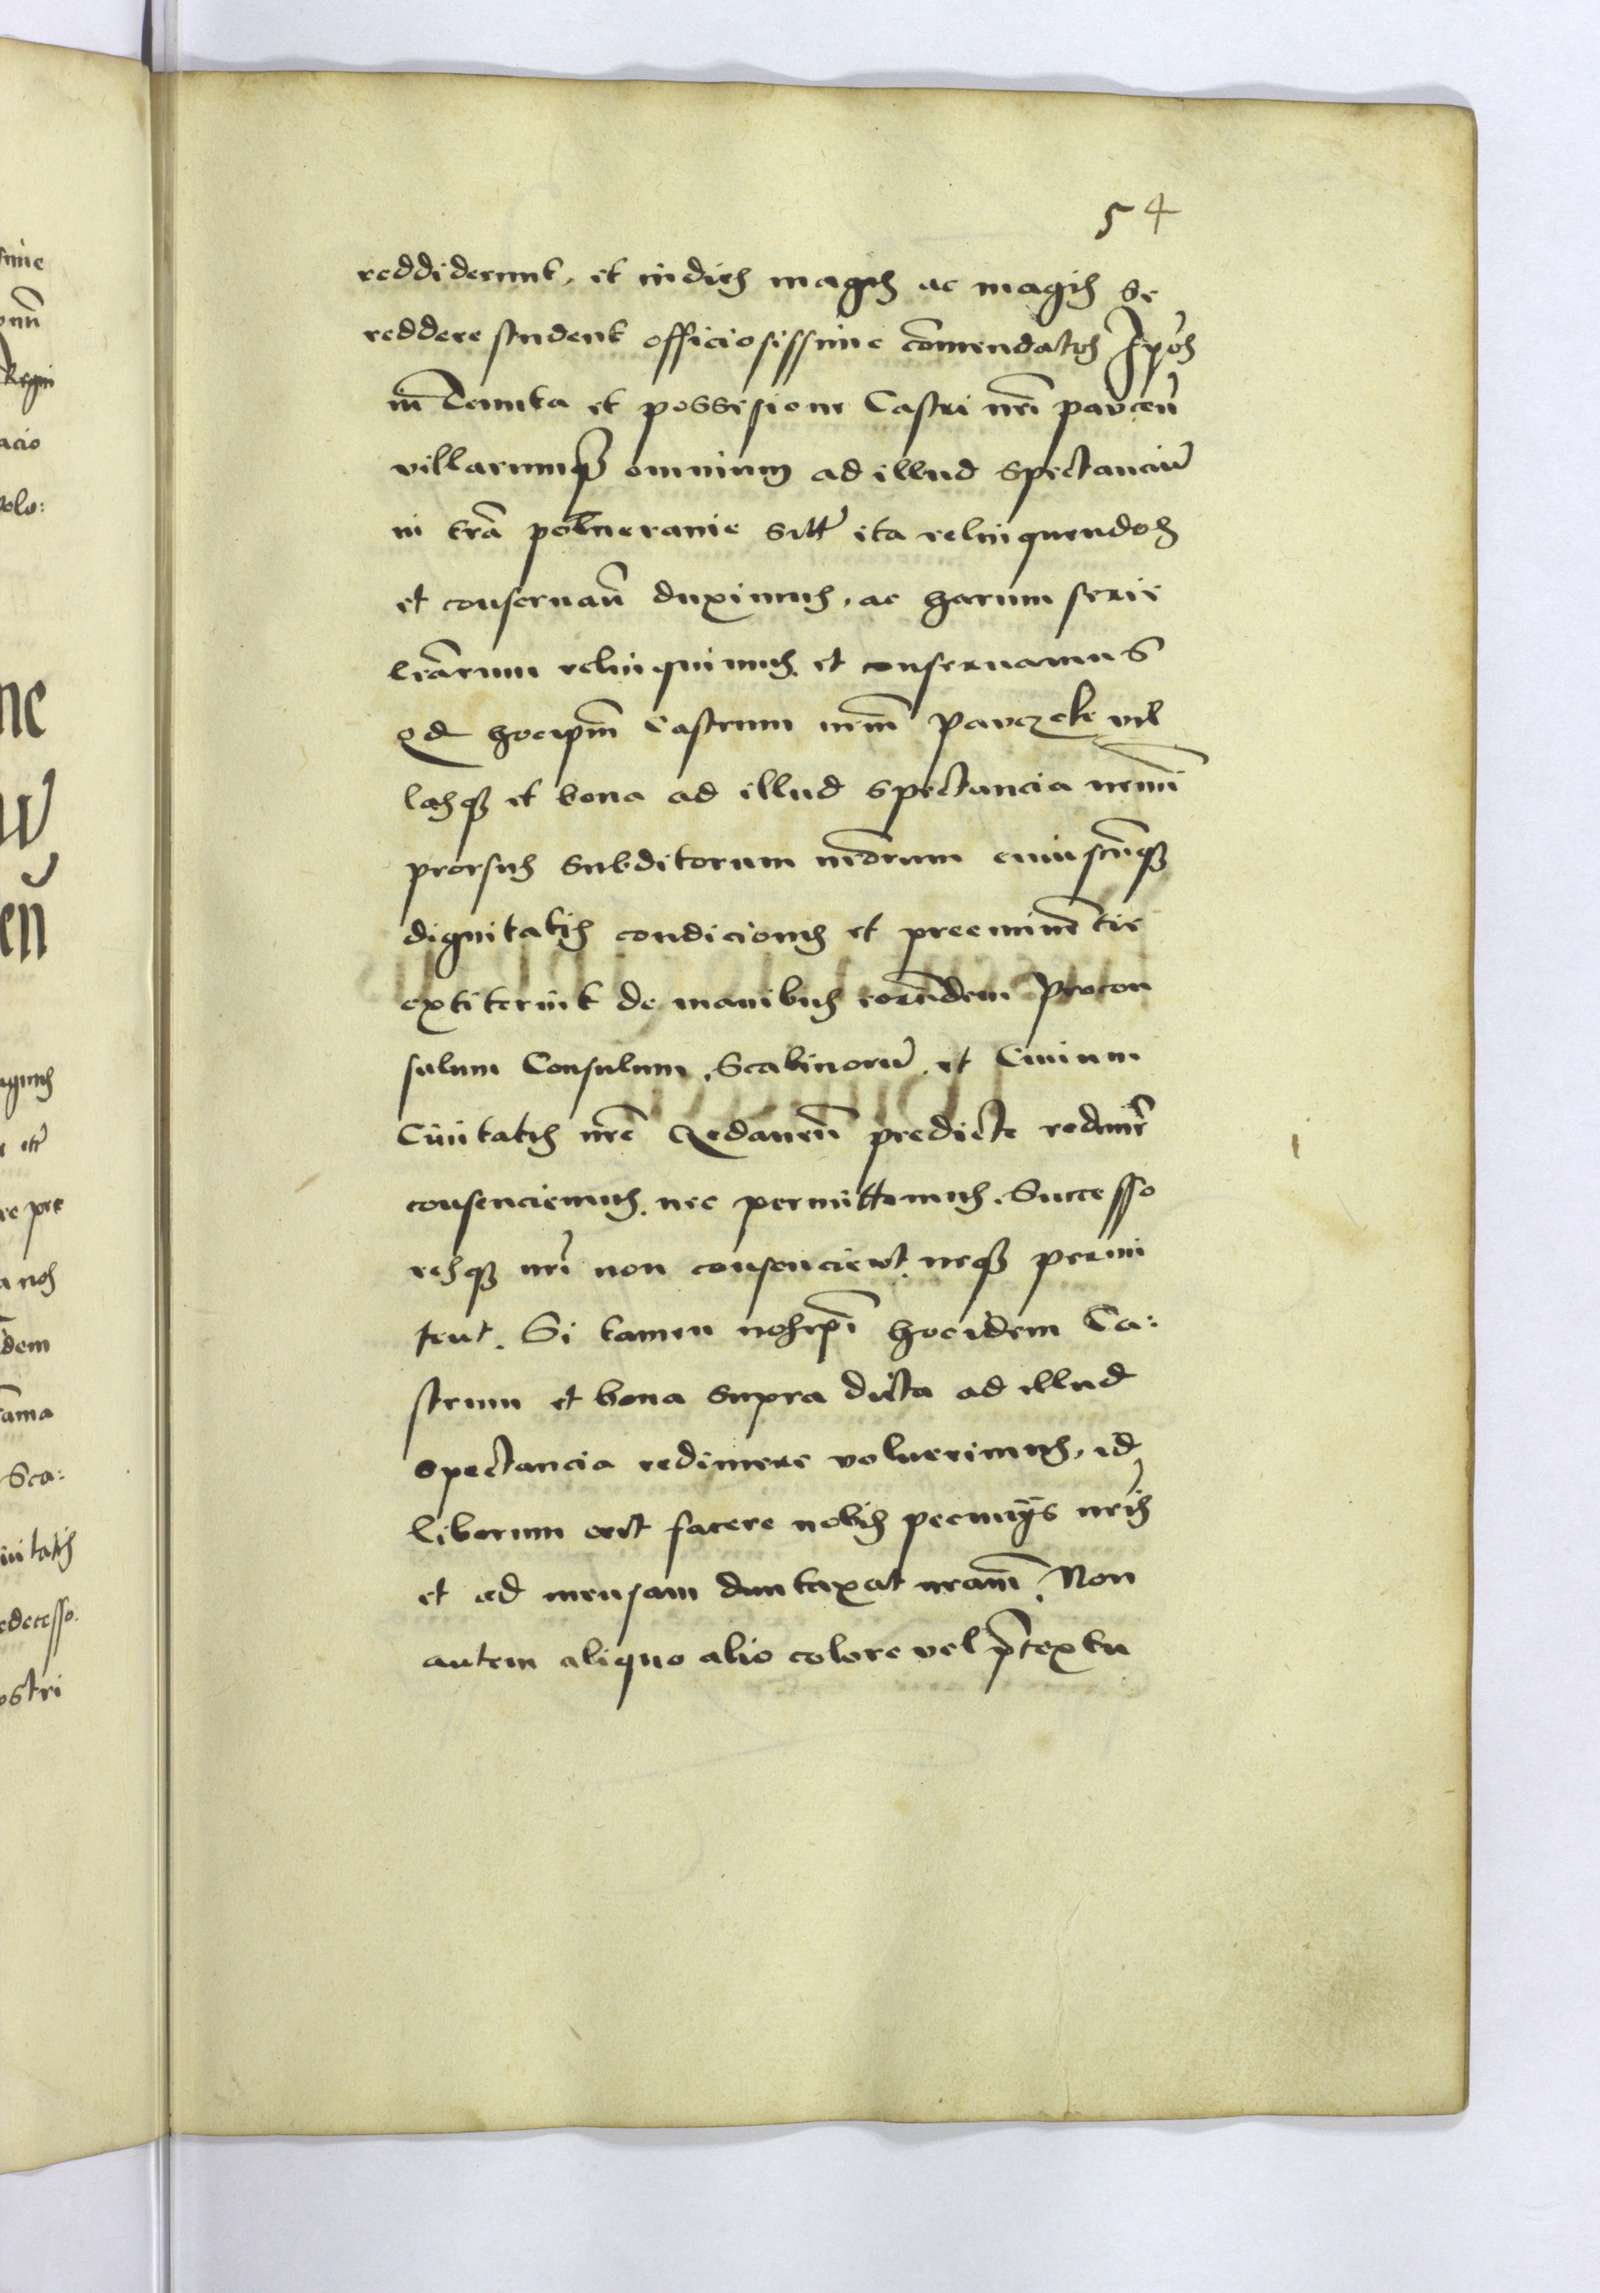 54
reddiderunt, et indies magis ac magis se
reddere student officiosissime cōmendatos Ipōs
in Tenuta et possesione Castri nrī pavcen̄
villarumqꝫ omnium ad illud spectanciū
in trā pomeranie ita relinquendos
et conservan̄ duximus, ac harum serie
lrārum relinquimus et conservamus
qd hocipm̄ Castrum nrm̄ Pavczcke vil
lasqꝫ et bona ad illud spectancia nemī
prorsus subditorum nrōrum cuiuscūqꝫ
dignitatis condicionis et preeminētie
extiterint de manibus eorūdem Procon
sulum Consulum, Scabinorū, et Civium
Civitatis nrē Gedanen̄ predicte redimēr
consenciemus, nec permittemus, Successo
resqꝫ nrī non consencient, neqꝫ permi
tent. Si tamen nosipī hocidem Ca:
strum et bona supra dicta ad illud
spectancia redimere voluerimus, id
liberum erit facere nobis pecunijs nrīs
et ad mensam duntaxat nrām, Non
autem aliquo alio colore vel p̄textu
sime
Regni
acio
polo:
ne
en̄
re pre
a nos
dem
Sca:
edecesso.
ostri